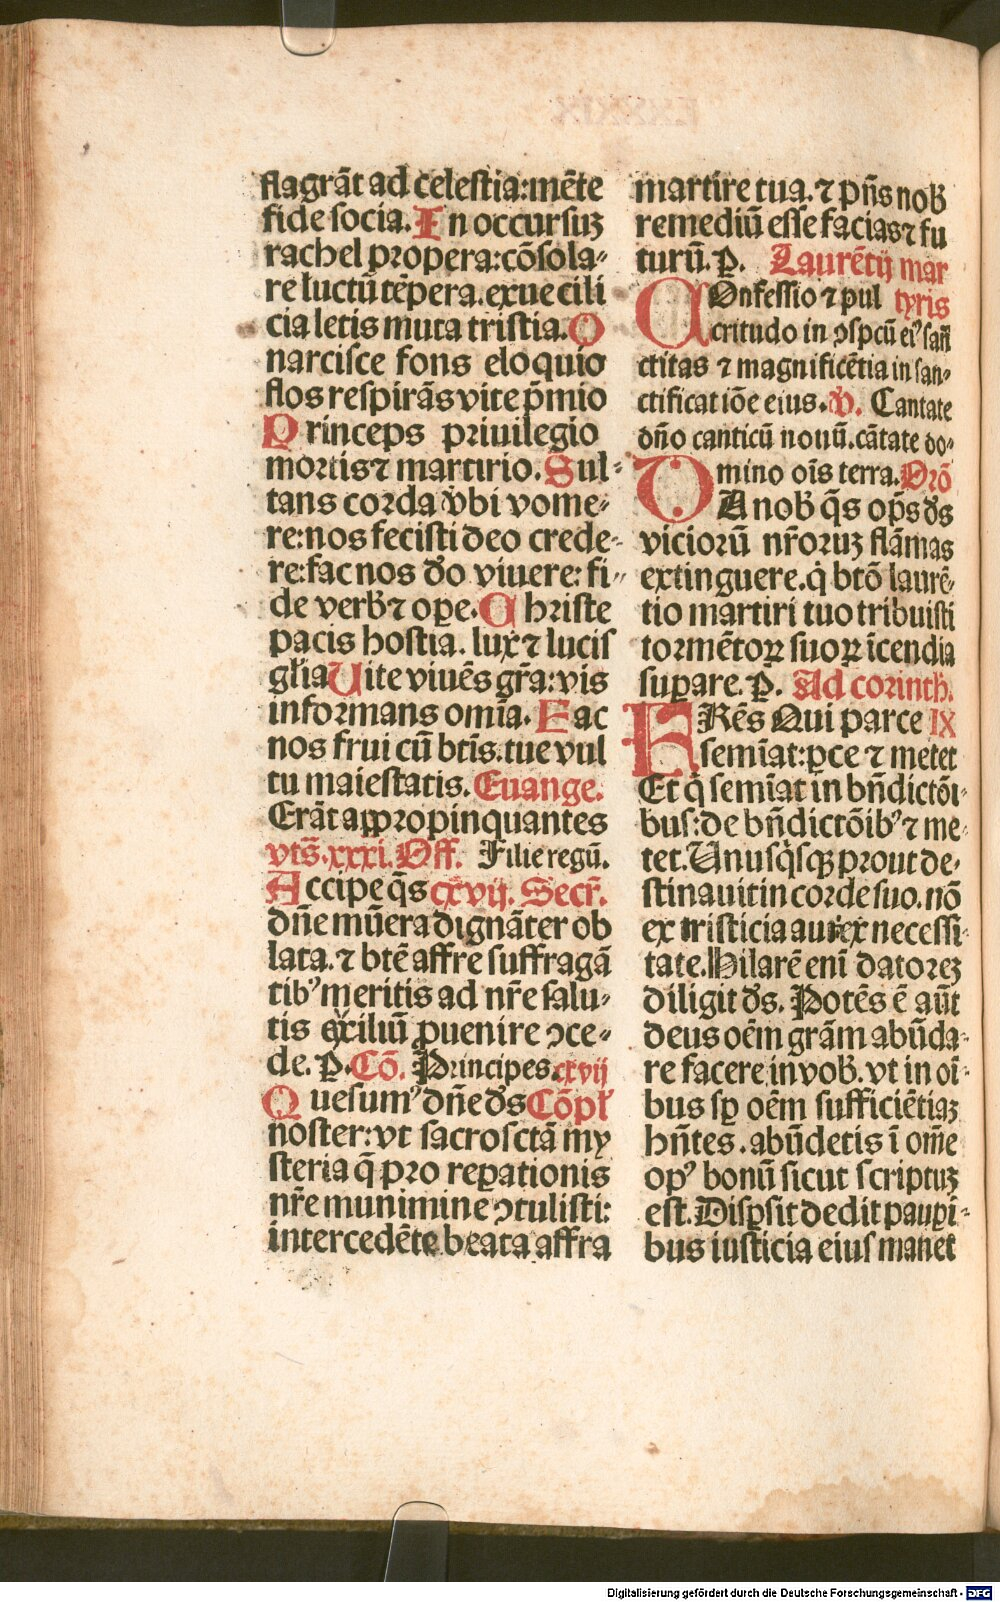 flagrāt ad celestia:mēte
fide socia. In occursuꝫ
rachel propera:cōsola⸗
re luctū tēpera.exue cili
cia letis muta tristia. O
narcisce fons eloquio
flos respirās vite p̄mio
Princeps priuilegio
mortis ⁊ martirio. Sul⸗
tans corda v̓bi vome⸗
re:nos fecisti deo crede⸗
re:fac nos deo viuere: fi⸗
de verb̓ ⁊ oꝑe. Christe
pacis hostia. lux ⁊ lucis
gl̓ia Uite viuēs gr̄a:vis
informans omīa. Fac
nos frui cū bt̄is.tue vul
tu maiestatis. Euange.
Erāt appropinquantes
vts̄.xxxi. Off. Filie regū.
Accipe q̄s cxvij. Secr̄.
dn̄e mūera dignāter ob
lata. ⁊ btē affre suffragā
tibꝰ meritis ad nr̄e salu⸗
tis auxiliū ꝓuenire ↄce⸗
de. P. Cō. Principes.cxvij
Quesumꝰ dn̄e ds̄ Cōpl̓
noster:vt sacrosctā my
steria q̄ pro reꝑationis
nr̄e munimine ↄtulisti:
intercedēte beata affra
martire tua. ⁊ pn̄s nob̓
remediū esse facias ⁊ fu
turū. P. Laurētij mar
COnfessio ⁊ pul tyris
critudo in ↄspcū eiꝰ san̄
ctitas ⁊ magnificētia in san⸗
ctificatiōe eius. v̓. Cantate
dn̄o canticū nouū.cātate do⸗
mino oīs terra. Orō
DA nob̓ q̄s op̄s ds̄
viciorū nr̄oruꝫ flāmas
extinguere.q̇ btō laurē⸗
tio martiri tuo tribuisti
tormētoꝝ suoꝝ īcendia
suꝑare. P. Ad corinth̓.
FRēs Qui parce IX
semīat:ꝑce ⁊ metet
Et q̇ semīat in bn̄dictōi⸗
bus:de bn̄dictōibꝰ ⁊ me⸗
tet. Unusq̇sqꝫ prout de⸗
stinauit in corde suo.nō
ex tristicia aut ex necessi⸗
tate. Hilarē enī datoreꝫ
diligit ds̄. Potēs ē aūt
deus oēm grām abūda⸗
re facere in vob̓. vt in oī⸗
bus sꝑ oēm sufficiētiaꝫ
hn̄tes. abūdetis ī om̄e
opꝰ bonū sicut scriptuꝫ
est. Disꝑsit dedit pauꝑi⸗
bus iusticia eius manet
Digitalisierung gefördert durch die Deutsche Forschungsgemeinschaft - DFG